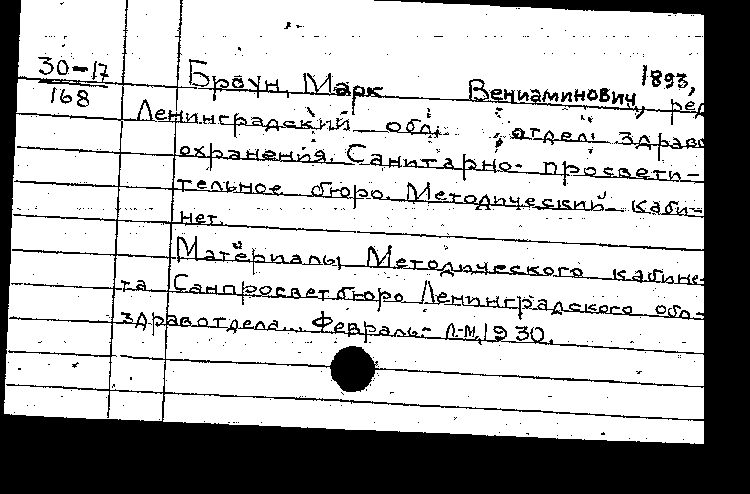 30-17
168
Браун, Марк Вениаминович, 1893, ред
Ленинградский обл. отдел здраво
охранения. Санитарно-просвети-
тельное бюро. Методический каби-
нет.
Материалы Методического кабине-
та Санпросветбюро Ленинградского обл-
здравотдела... Февраль- Л-М, 1930.